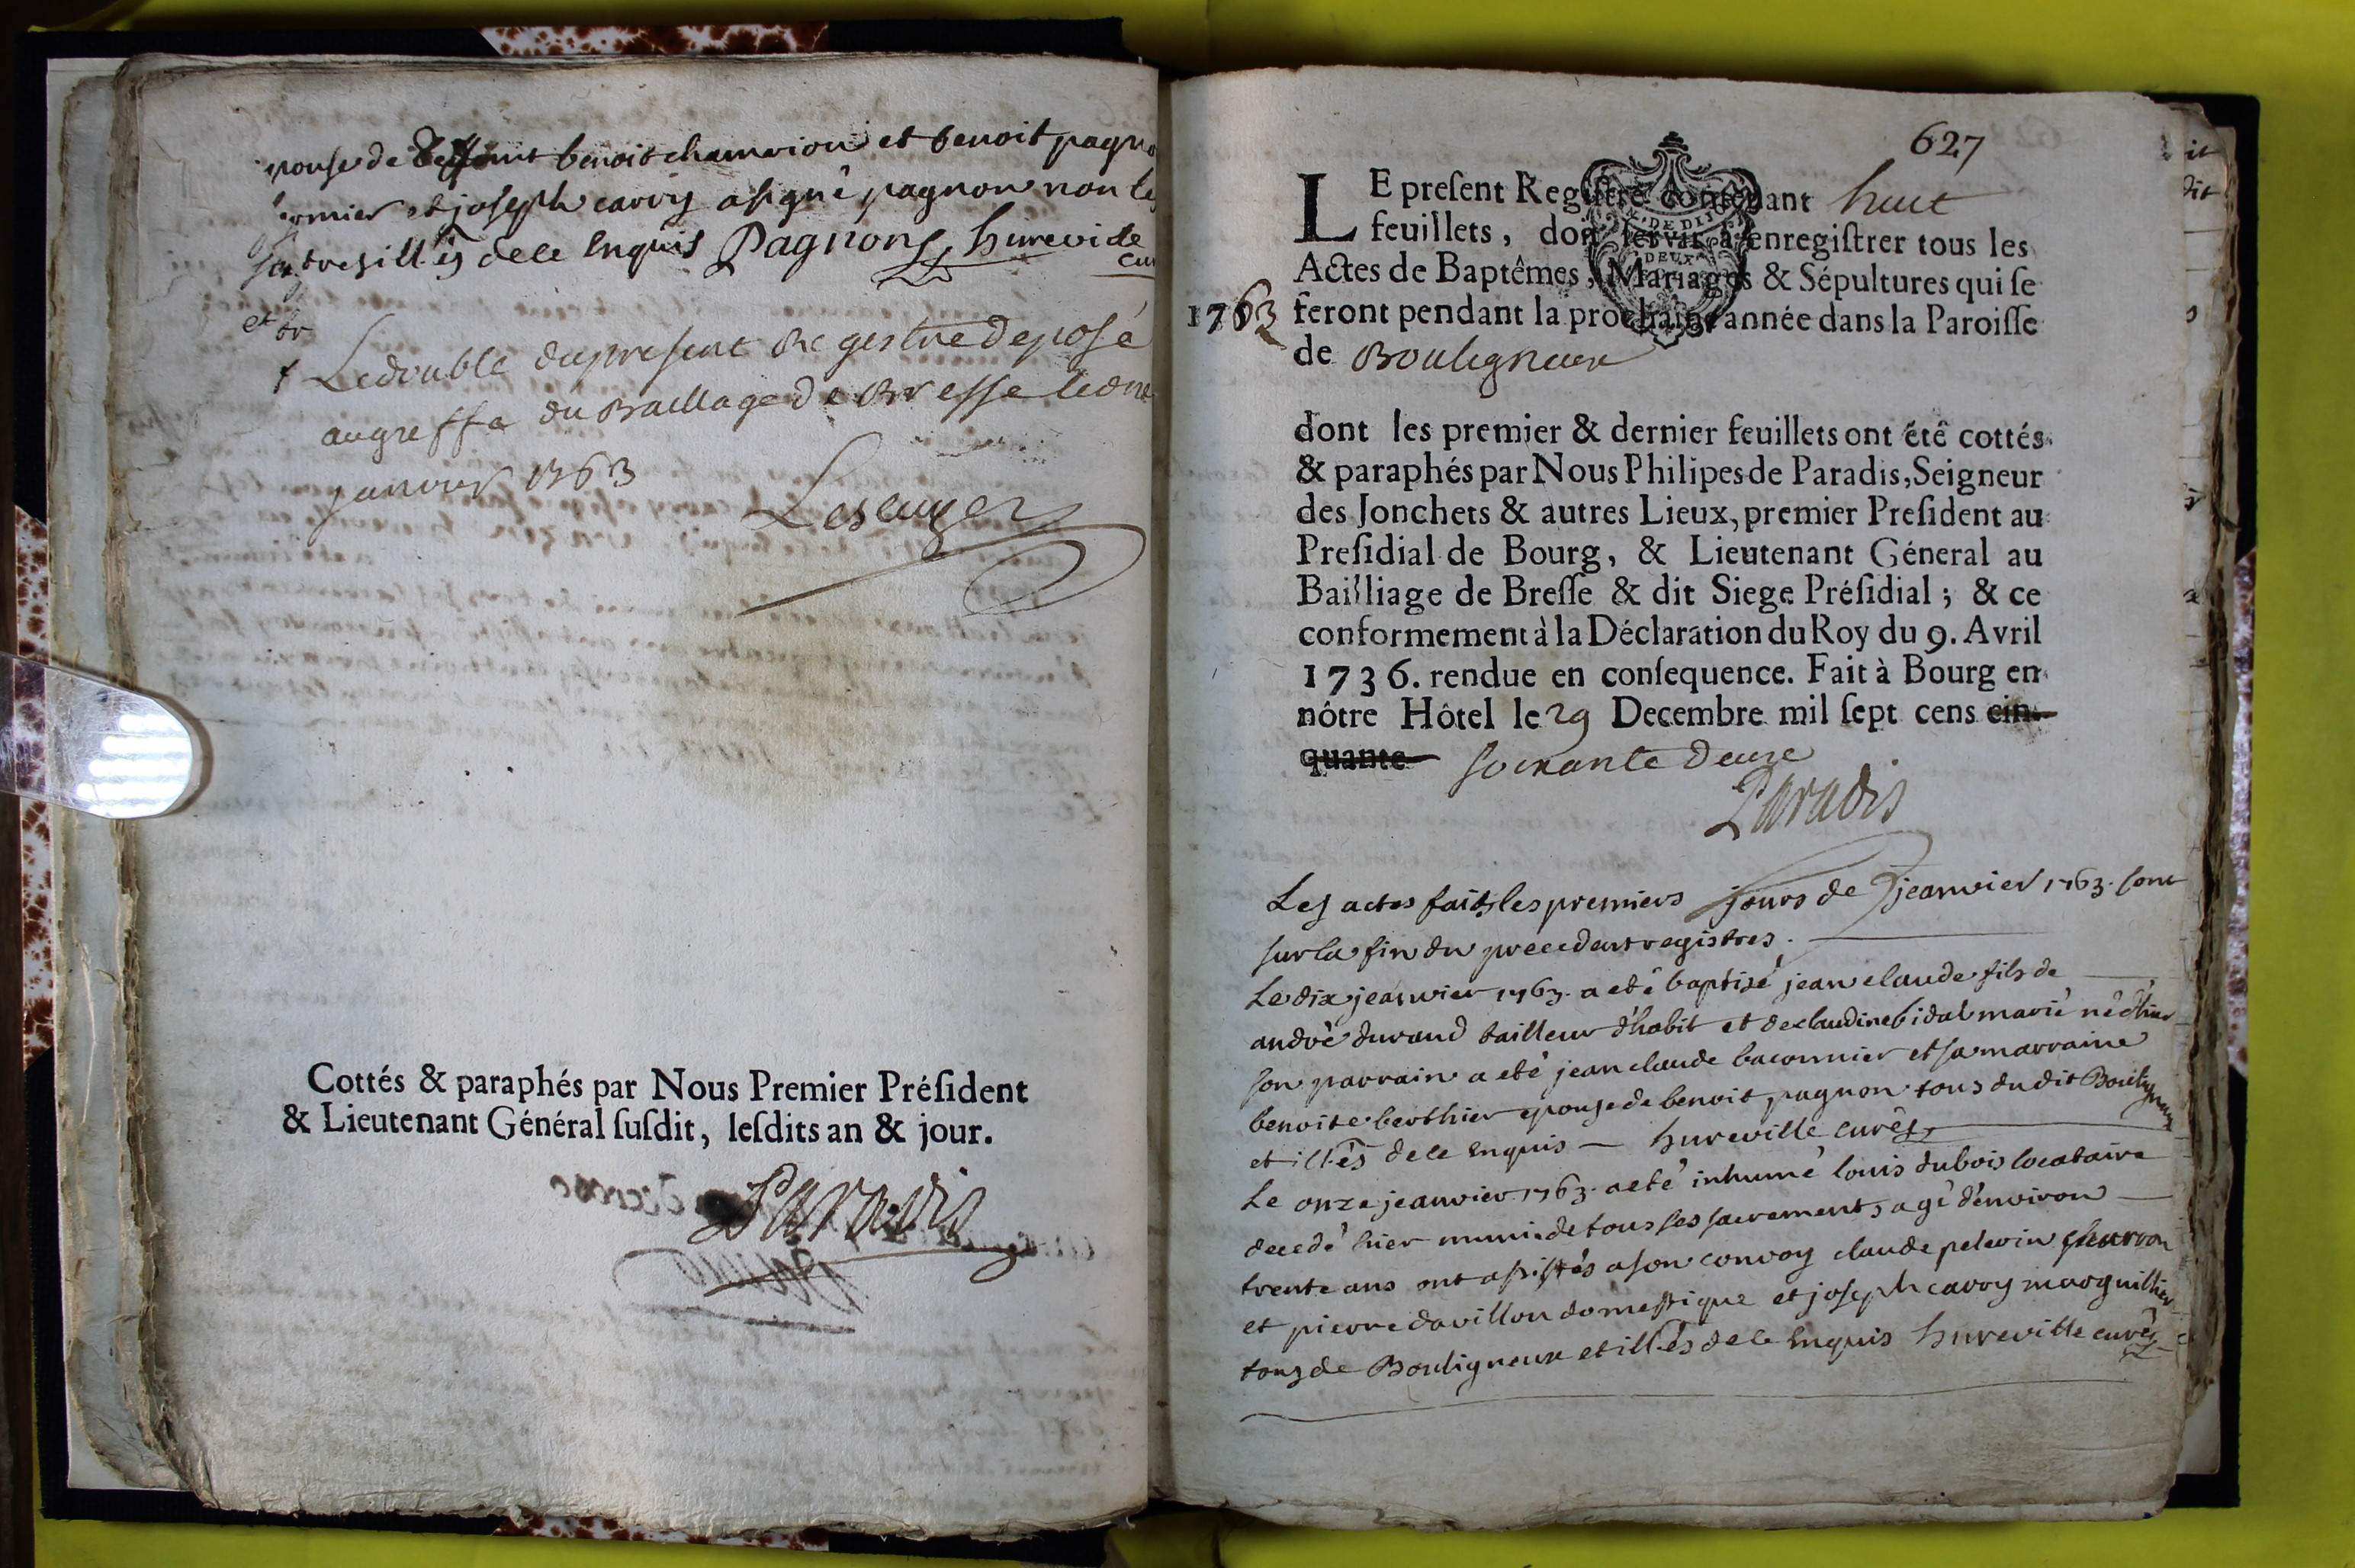 epouse de deffunt benoit chamerion et benoit pagno
fermier et joseph carry a signé pagnon non les
autres illés de ce enquis Pagnon hureville
cur
et
Le double du present Regestre deposé
au greffe du Baillage de Bresse le
janvier 1763
Cottés & paraphés par Nous Premier Préſident
& Lieutenant Général ſuſdit, leſdits an & jour.
Paradis
627
LE preſent Regiſtre contenant huit
feuillets, doit ſervir à enregiſtrer tous les
Actes de Baptêmes, Mariages & Sépultures qui ſe
1763 feront pendant la prochaine année dans la Paroiſſe
de Bouligneux
dont les premier & dernier feuillets ont été cottés
& paraphés par Nous Philipes de Paradis, Seigneur
des Jonchets & autres Lieux, premier Preſident au
Preſidial de Bourg, & Lieutenant Géneral au
Bailliage de Breſſe & dit Siege Préſidial ; & ce
conformement à la Déclaration du Roy du 9. Avril
1736. rendue en conſequence. Fait à Bourg en
nôtre Hôtel le 29 Decembre mil ſept cens cin-
quante soixante deuze
Paradis
Les actes faits les premiers jours de jeanvier 1763. sont
sur la fin du precedent registres.
Le dix jeanvier 1763. a eté baptisé jean claude fils de
andré durand tailleur d'habit et de claudine bidal marié né d'hier
son parrain a eté jean claude baconnier et sa marraine
benoite berthier epouse de benoit pagnon tous du dit Bouligneux
et illés de ce enquis — hureville curé
Le onze jeanvier 1763. a eté inhumé louis dubois locataire
decedé hier muni de tous ses sacrements agé d'environ
trente ans ont assistés a son convoy claude pelerin
et pierre davillon domestique et joseph carry marguillier
tous de Bouligneux et illés de ce enquis hureville curé